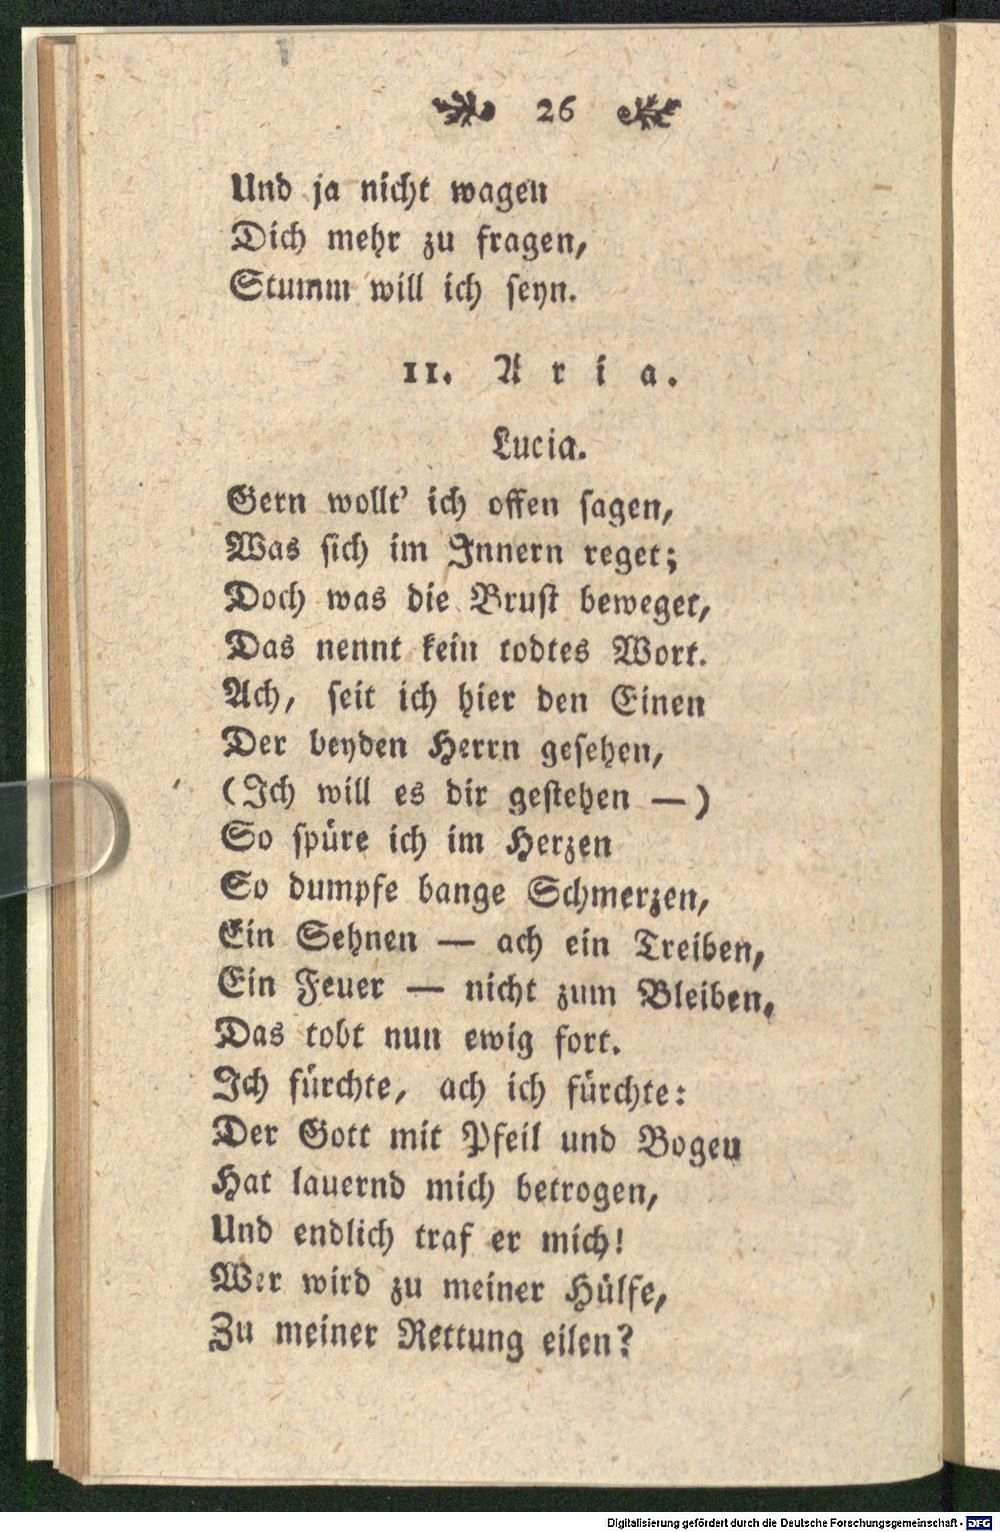 26
Und ja nicht wagen
Dich mehr zu fragen,
Stumm will ich seyn.
11. Aria.
Lucia.
Gern wollt' ich offen sagen,
Was sich im Innern reget;
Doch was die Brust beweget,
Das nennt kein todtes Wort.
Ach, seit ich hier den Einen
Der beyden Herrn gesehen,
(Ich will es dir gestehen — )
So spüre ich im Herzen
So dumpfe bange Schmerzen,
Ein Sehnen — ach ein Treiben,
Ein Feuer — nicht zum Bleiben,
Das tobt nun ewig fort.
Ich fürchte, ach ich fürchte:
Der Gott mit Pfeil und Bogen
Hat lauernd mich betrogen,
Und endlich traf er mich!
Wer wird zu meiner Hülfe,
Zu meiner Rettung eilen?
Digitalisierung gefördert durch die Deutsche Forschungsgemeinschaft - DFG